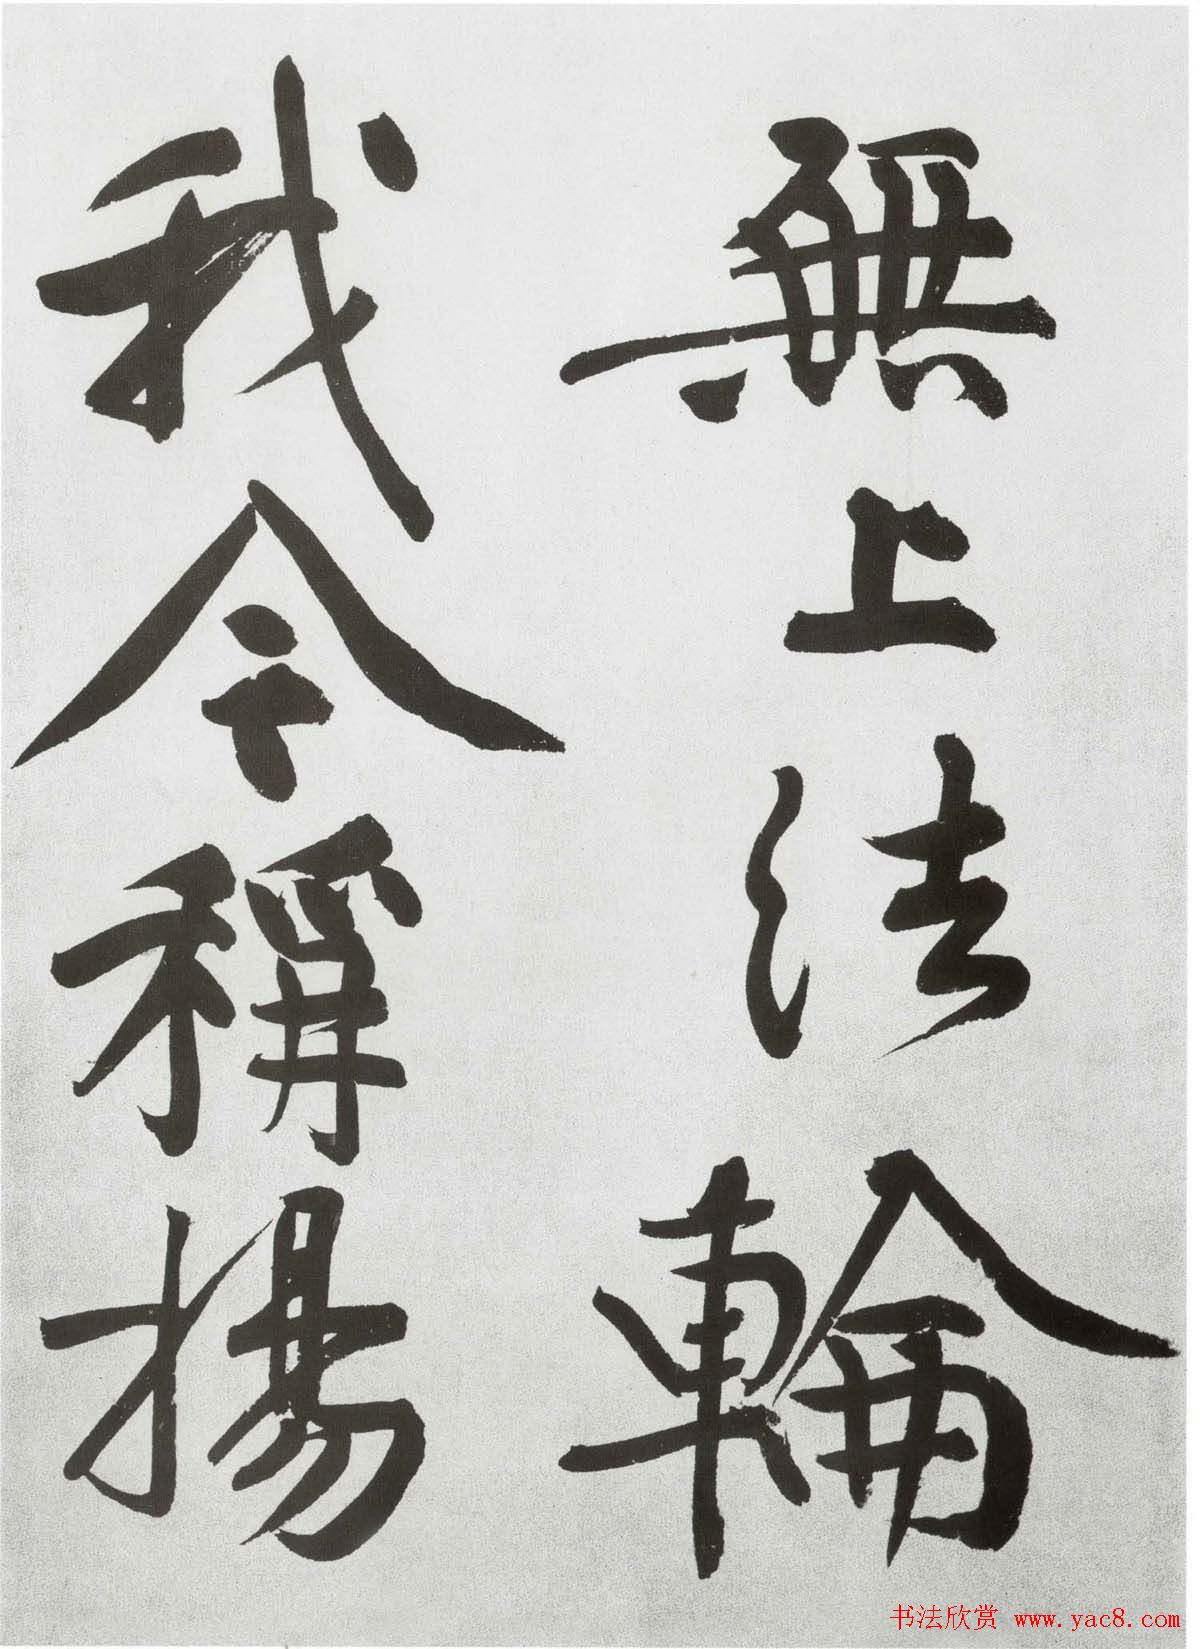 無上法輪
我今稱揚
书法欣赏 www.yac8.com